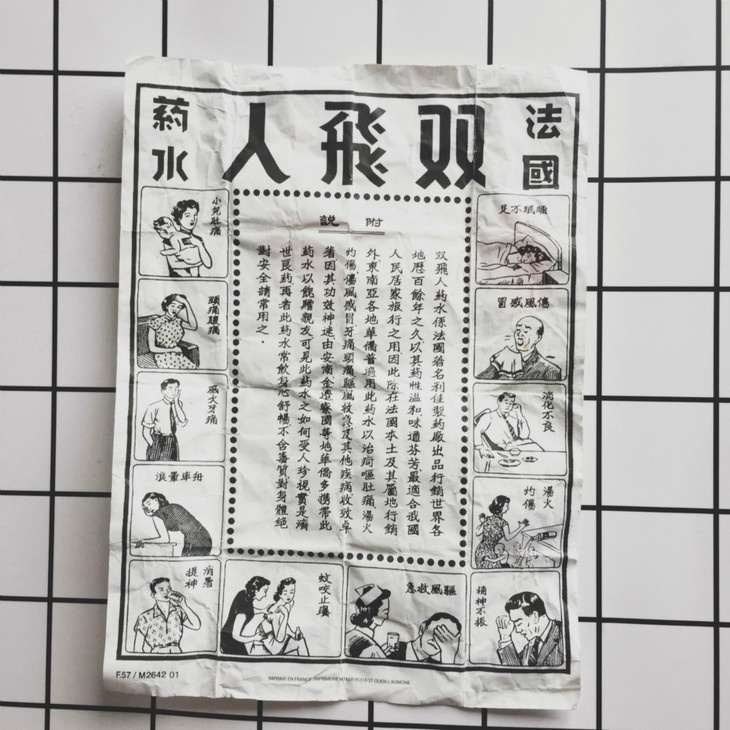 法國
双飛人
葯水
附說
双飛人葯水係法國著名利佳製葯廠出品行銷世界各
地歷百餘年之久以其葯性溫和味道芬芳最適合我國
人民居家旅行之用因此除在法國本土及其屬地行銷
外東南亞各地華僑普遍用此葯水以治疴嘔肚痛湯火
灼傷傷風感冒牙痛頭痛驅風救急及其他疾病收效卓
著因其功效神速由安南金邊寮國等地華僑多携帶此
葯水以餽贈親友可見此葯水之如何受人珍視實是濟
世良葯再者此葯水常飲身心舒暢不含毒質對身體絕
對安全請常用之．
睡眠不足
傷風感冒
消化不良
湯火
灼傷
精神不振
驅風救急
蚊咬止癢
消暑
提神
舟車暈浪
風火牙痛
頭痛腹痛
小兒肚痛
F.57 / M2642 01
IMPRIMÉ EN FRANCE